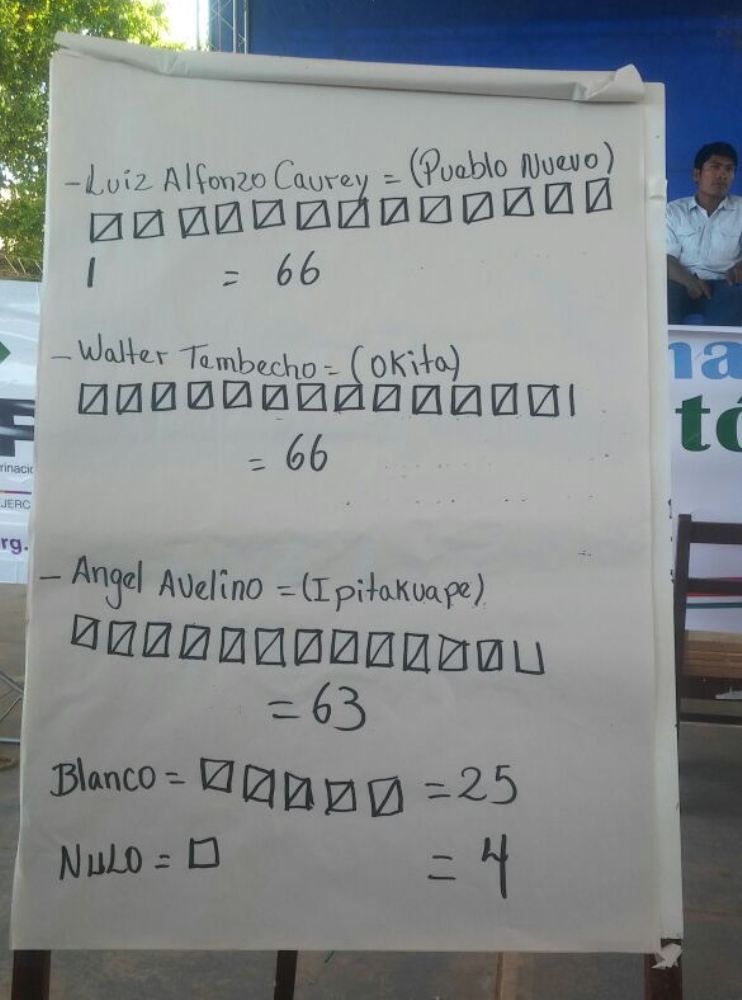 - Luiz Alfonzo Caurey = (Pueblo Nuevo)
1 = 66
- Walter Tambecho = (Okita)
= 66
- Angel Avelino = (Ipitakuape)
= 63
Blanco = = 25
Nulo = = 4
rinacio
JERC
rg.
na
tó